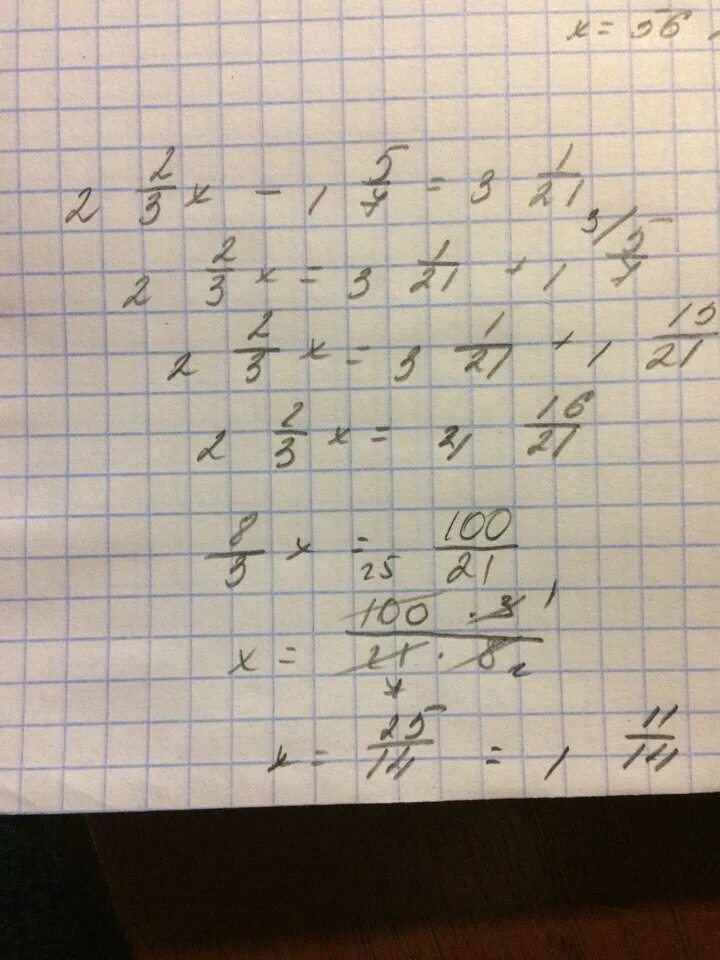 x = 56
2 2/3 x - 1 5/7 = 3 1/21
2 2/3 x = 3 1/21 + 1 3/ 5/7
2 2/3 x = 3 1/21 + 1 15/21
2 2/3 x = 4 16/21
8/3 x = 100/21
x = 25 100 · 3 1 / 21 · 8 2
7
x = 25/14 = 1 11/14